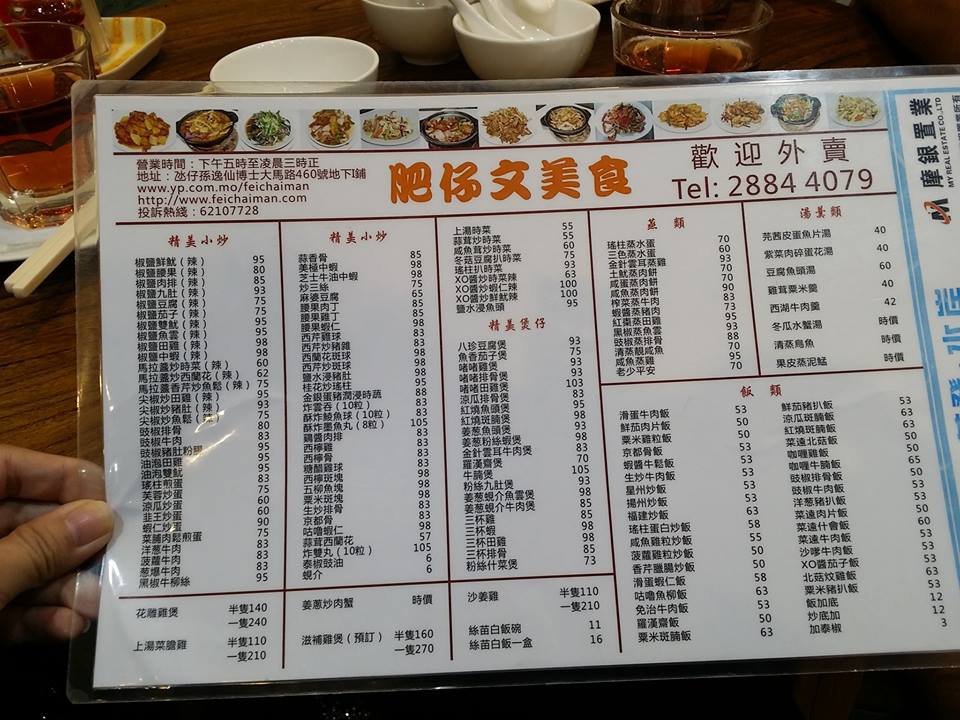 營業時間：下午五時至凌晨三時正
地址：氹仔孫逸仙博士大馬路460號地下I鋪
www.yp.com.mo/feichaiman
http://www.feichaiman.com
投訴熱綫：62107728
肥仔文美食
歡迎外賣
Tel: 2884 4079
精美小炒
椒鹽鮮魷（辣） 95
椒鹽腰果（辣） 80
椒鹽肉排（辣） 85
椒鹽九肚（辣） 93
椒鹽豆腐（辣） 75
椒鹽茄子（辣） 75
椒鹽雙魷（辣） 98
椒鹽魚雲（辣） 98
椒鹽田雞（辣） 98
椒鹽中蝦（辣） 98
馬拉盞炒時菜（辣） 60
馬拉盞炒西蘭花（辣） 62
馬拉盞香芹炒魚鬆（辣） 75
尖椒炒田雞（辣） 95
尖椒炒豬肚（辣） 93
尖椒炒魚鬆（辣） 75
豉椒排骨 83
豉椒牛肉 83
豉椒豬肚粉腸 95
油泡田雞 95
油泡雙魷 95
瑤柱煎蛋 83
芙蓉炒蛋 75
涼瓜炒蛋 60
韭王炒蛋 60
蝦仁炒蛋 90
菜脯肉鬆煎蛋 75
洋葱牛肉 83
菠蘿牛肉 83
葱爆牛肉 83
黑椒牛柳絲 95
精美小炒
蒜香骨 85
美極中蝦 98
芝士牛油中蝦 98
炒三絲 75
麻婆豆腐 65
腰果肉丁 85
腰果雞丁 85
腰果蝦仁 98
西芹雞球 83
西芹炒豬雜 83
西蘭花斑球 98
西芹炒斑球 98
鹽水浸豬肚 93
桂花炒瑤柱 95
金銀蛋豬潤浸時蔬 88
炸雲吞（10粒） 83
酥炸鯪魚球（10粒） 83
酥炸墨魚丸（8粒） 105
鷄醬肉排 83
西檸雞 83
西檸骨 83
糖醋雞球 83
西檸斑塊 98
五柳魚塊 98
粟米斑塊 98
生炒排骨 83
京都骨 83
咕嚕蝦仁 98
蒜茸西蘭花 57
炸雙丸（10粒） 105
泰椒豉油 6
蜆介 6
上湯時菜 55
蒜茸炒時菜 55
咸魚茸炒時菜 60
冬菇豆腐扒時菜 75
瑤柱扒時菜 93
XO醬炒時菜辣 63
XO醬炒蝦仁辣 100
XO醬炒鮮魷辣 100
鹽水浸魚頭 95
精美煲仔
八珍豆腐煲 93
魚香茄子煲 75
啫啫雞煲 93
啫啫排骨煲 93
啫啫田雞煲 103
涼瓜排骨煲 83
紅燒魚頭煲 95
紅燒斑腩煲 98
姜葱魚頭煲 95
姜葱粉絲蝦煲 98
金針雲耳牛肉煲 85
羅漢齋煲 70
牛腩煲 105
粉絲九肚煲 93
姜葱蜆介魚雲煲 98
姜葱蜆介牛肉煲 85
三杯雞 85
三杯蝦 98
三杯田雞 98
三杯排骨 85
粉絲什菜煲 73
蒸類
瑤柱蒸水蛋 70
三色蒸水蛋 60
金針雲耳蒸雞 93
土魷蒸肉餅 70
咸蛋蒸肉餅 70
咸魚蒸肉餅 70
榨菜蒸牛肉 83
蝦醬蒸豬肉 83
紅棗蒸田雞 94
黑椒蒸魚雲 93
豉椒蒸排骨 88
清蒸靚咸魚 70
咸魚蒸雞 95
老少平安 70
湯羹類
芫茜皮蛋魚片湯 40
紫菜肉碎蛋花湯 40
豆腐魚頭湯 60
雞茸粟米羹 40
西湖牛肉羹 42
冬瓜水蟹湯 時價
清蒸烏魚 時價
果皮蒸泥鯭 時價
飯類
滑蛋牛肉飯 53
鮮茄肉片飯 50
粟米雞粒飯 50
京都骨飯 53
蝦醬牛鬆飯 53
生炒牛肉飯 53
星州炒飯 53
揚州炒飯 53
福建炒飯 53
瑤柱蛋白炒飯 58
咸魚雞粒炒飯 55
菠蘿雞粒炒飯 50
香芹臘腸炒飯 50
滑蛋蝦仁飯 58
咕嚕魚柳飯 63
免治牛肉飯 50
羅漢齋飯 50
粟米斑腩飯 63
鮮茄豬扒飯 53
涼瓜斑腩飯 63
紅燒斑腩飯 63
菜遠北菇飯 50
咖喱雞飯 50
咖喱牛腩飯 65
豉椒排骨飯 50
豉椒牛肉飯 53
洋葱豬扒飯 53
菜遠肉片飯 50
菜遠什會飯 60
菜遠牛肉飯 53
沙嗲牛肉飯 53
XO醬茄子飯 53
北菇炆雞飯 63
粟米豬扒飯 53
飯加底 12
炒底加 12
加泰椒 3
花雕雞煲 半隻140
一隻240
上湯菜膽雞 半隻110
一隻210
姜蔥炒肉蟹 時價
滋補雞煲（預訂） 半隻160
一隻270
沙姜雞 半隻110
一隻210
絲苗白飯碗 11
絲苗白飯一盒 16
摩銀置業
MY REAL ESTATE CO.,LTD